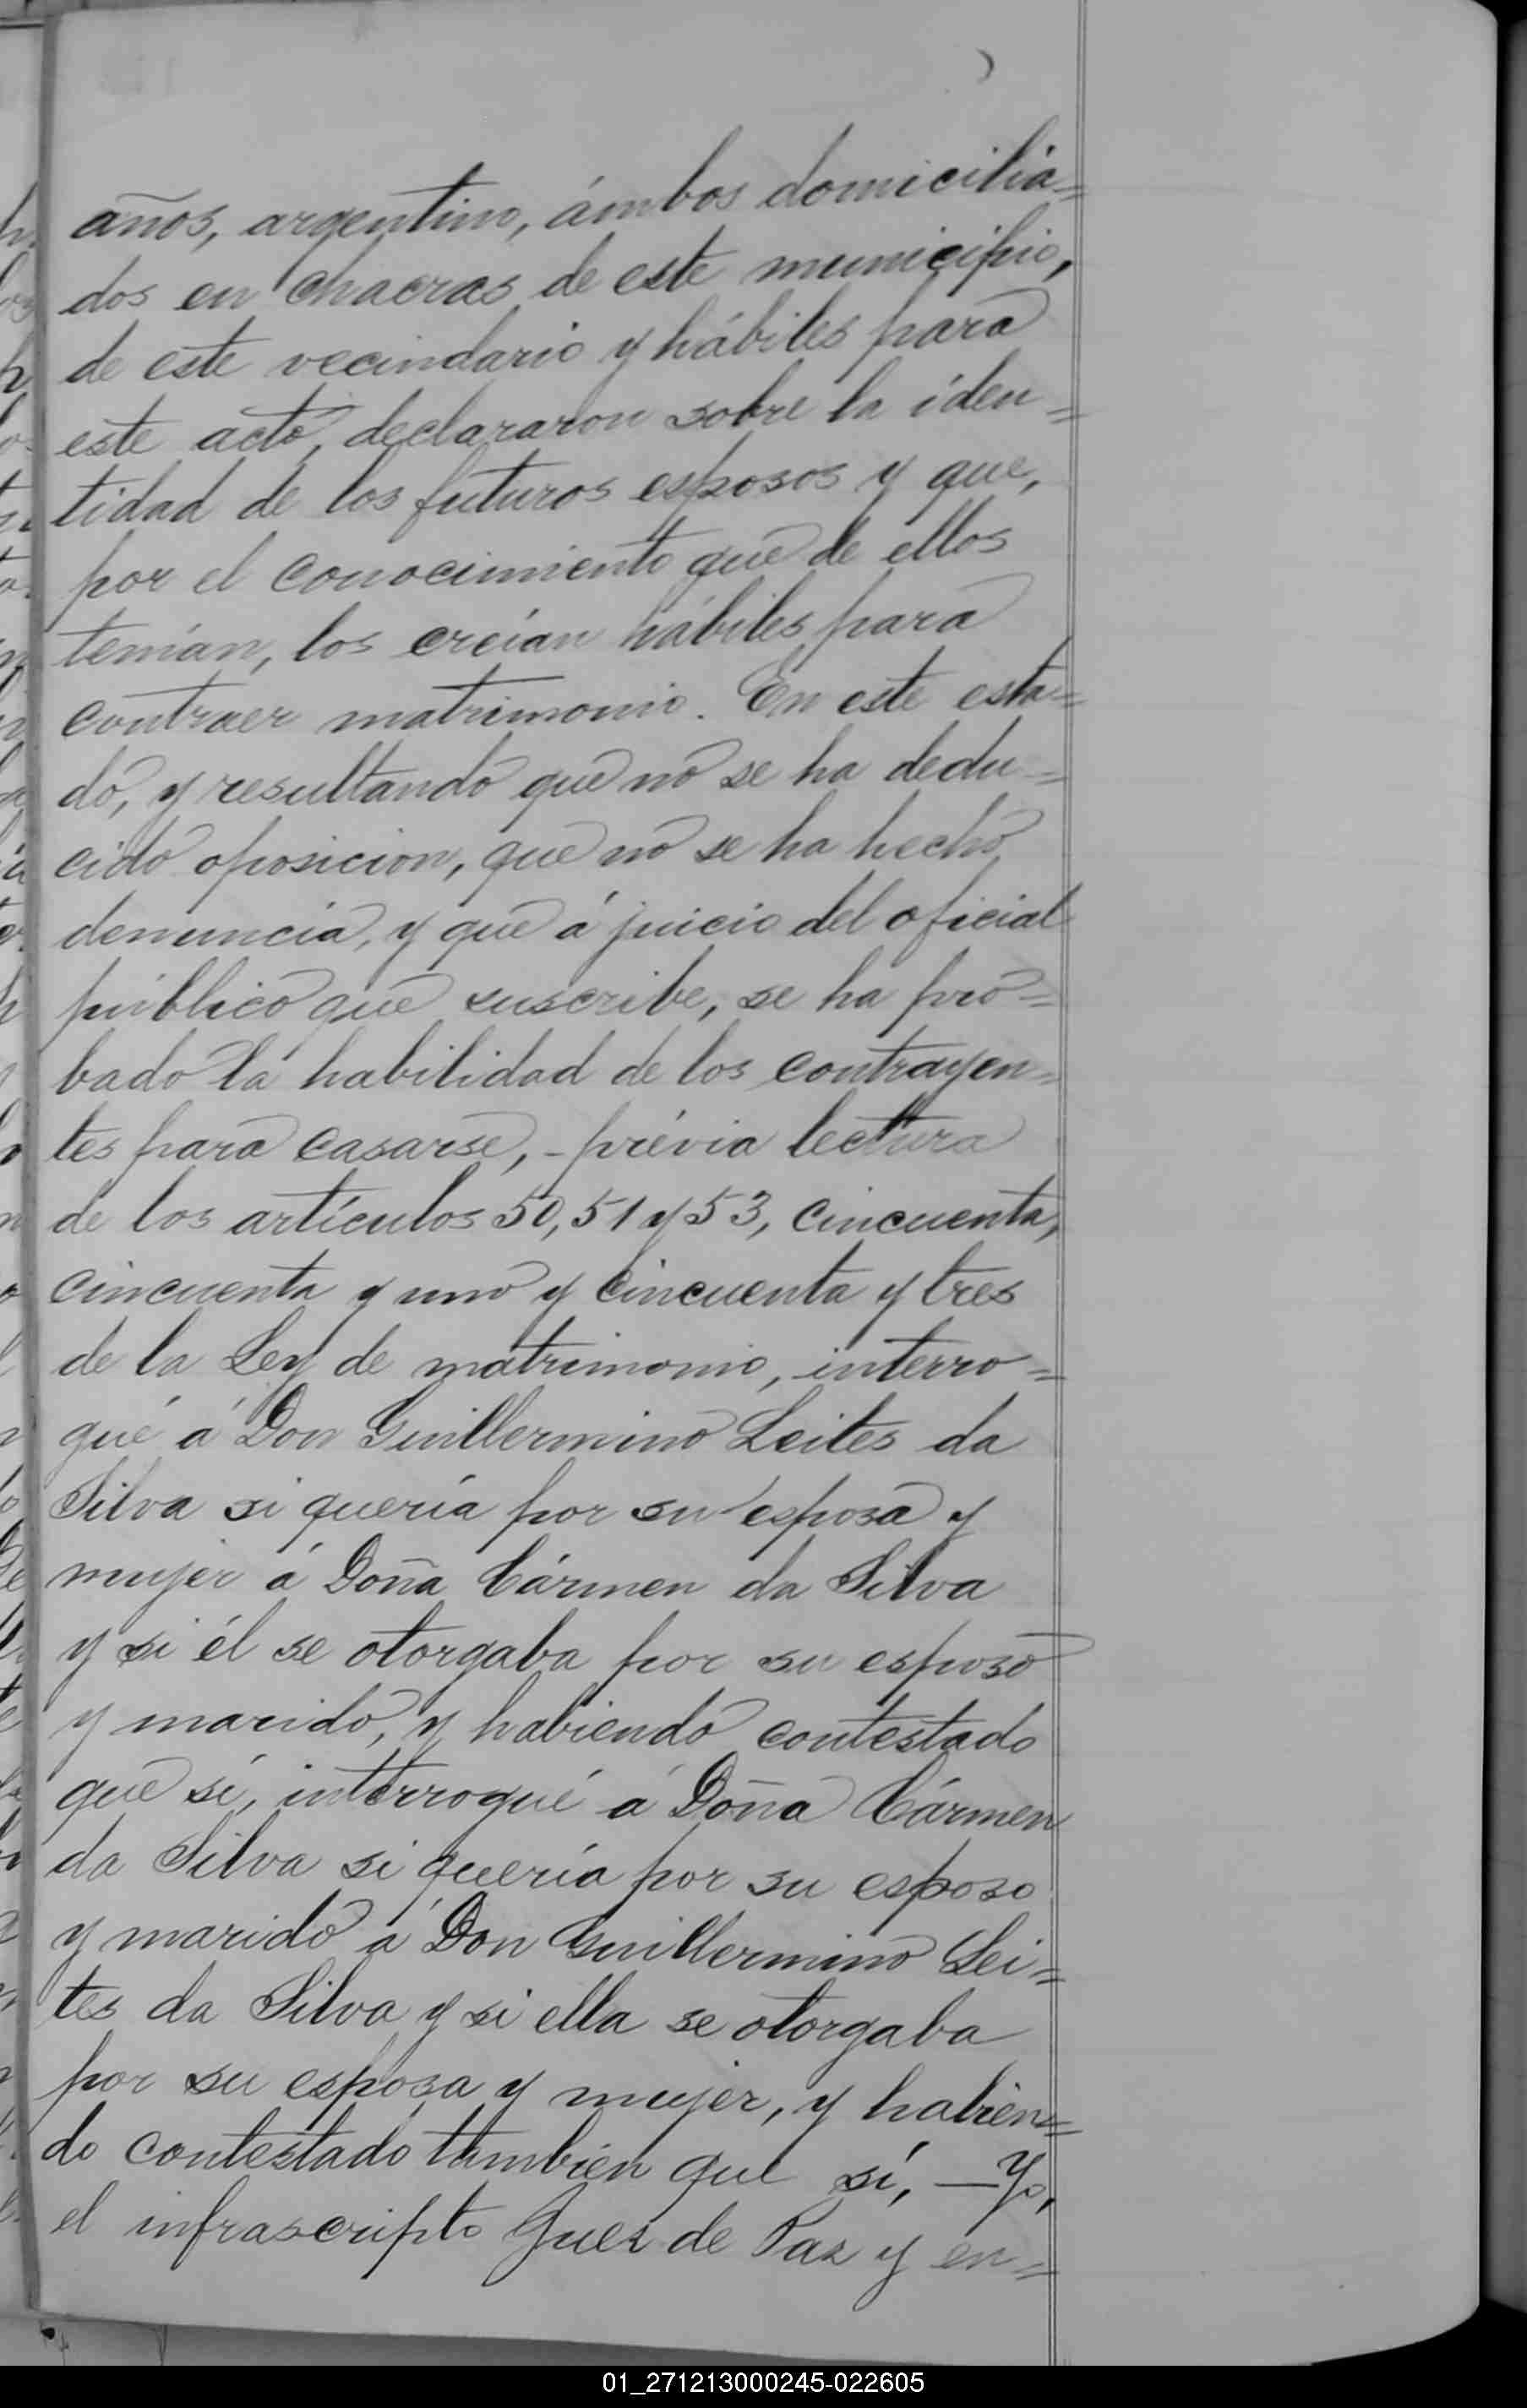 años, argentino, ámbos domicilia=
dos en chacras de este municipio,
de este vecindario y hábiles para
este acto, declararon sobre la iden=
tidad de los futuros esposos y que,
por el conocimiento que de ellos
tenían, los creían hábiles para
contraer matrimonio. En este esta=
do, y resultando que no se ha dedu=
cido oposicion, que no se ha hecho
denuncia, y que á juicio del oficial
público que suscribe, se ha pro=
bado la habilidad de los contrayen=
tes para casarse, - prévia lectura
de los artículos 50, 51 y 53, cincuenta,
cincuenta y uno y cincuenta y tres
de la Ley de matrimonio, interro=
gué á Don Guillermino Leites da
Silva si quería por su esposa y
mujer á Doña Cármen da Silva
y si él se otorgaba por su esposo
y marido, y habiendo contestado
que sí, interrogué á Doña Cármen
da Silva si quería por su esposo
y marido á Don Guillermino Lei=
tes da Silva y si ella se otorgaba
por su esposa y mujer, y habien=
do contestado tambien que sí, — Yo,
el infrascripto Juez de Paz y en=
01_271213000245-022605